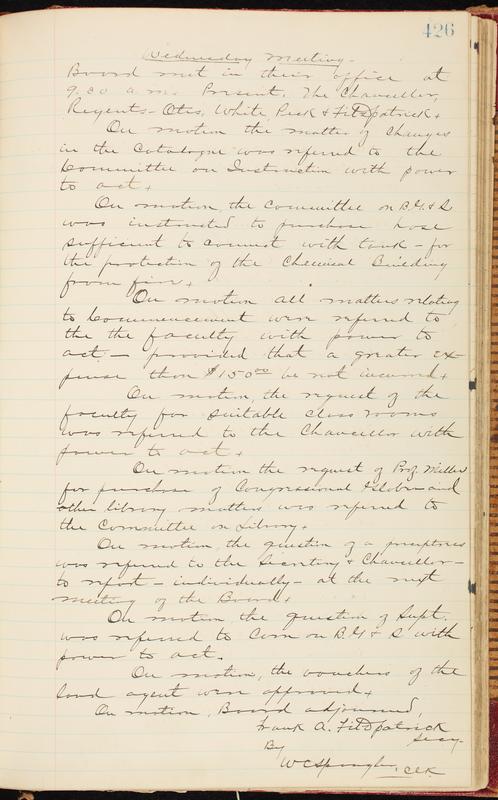 426
Wednesday Meeting.
Board met in their office at
9.30 a.m. Present, The Chancellor,
Regents - Otis, White, Peck & FitzPatrick.
On motion the matter of changes
in the Catalogue was referred to the
Committee on Instruction with power
to act.
On motion, the Committee on B.G. & S
was instructed to purchase hose
sufficient to connect with tank - for
the protection of the Chemical Building
from fire.
On motion all matters relating
to Commencement were referred to
the the faculty with power to
act - provided that a greater ex
pense than $150 00 be not incurred.
On motion, the request of the
faculty for suitable class rooms
was referred to the Chancellor with
power to act.
On motion the request of Prof Miller
for purchase of Congressional Globe and
other library matters was referred to
the Committee on Library.
On motion, the question of a preceptress
was referred to the Secretary & Chancellor -
to report - individually - at the next
meeting of the Board.
On motion, the question of Supt.
was referred to Com on B. G & S with
power to act.
On motion, the vouchers of the
land agent were approved.
On motion, Board adjourned,
Frank A. FitzPatrick
Secy.
By
W C Spangler, clk